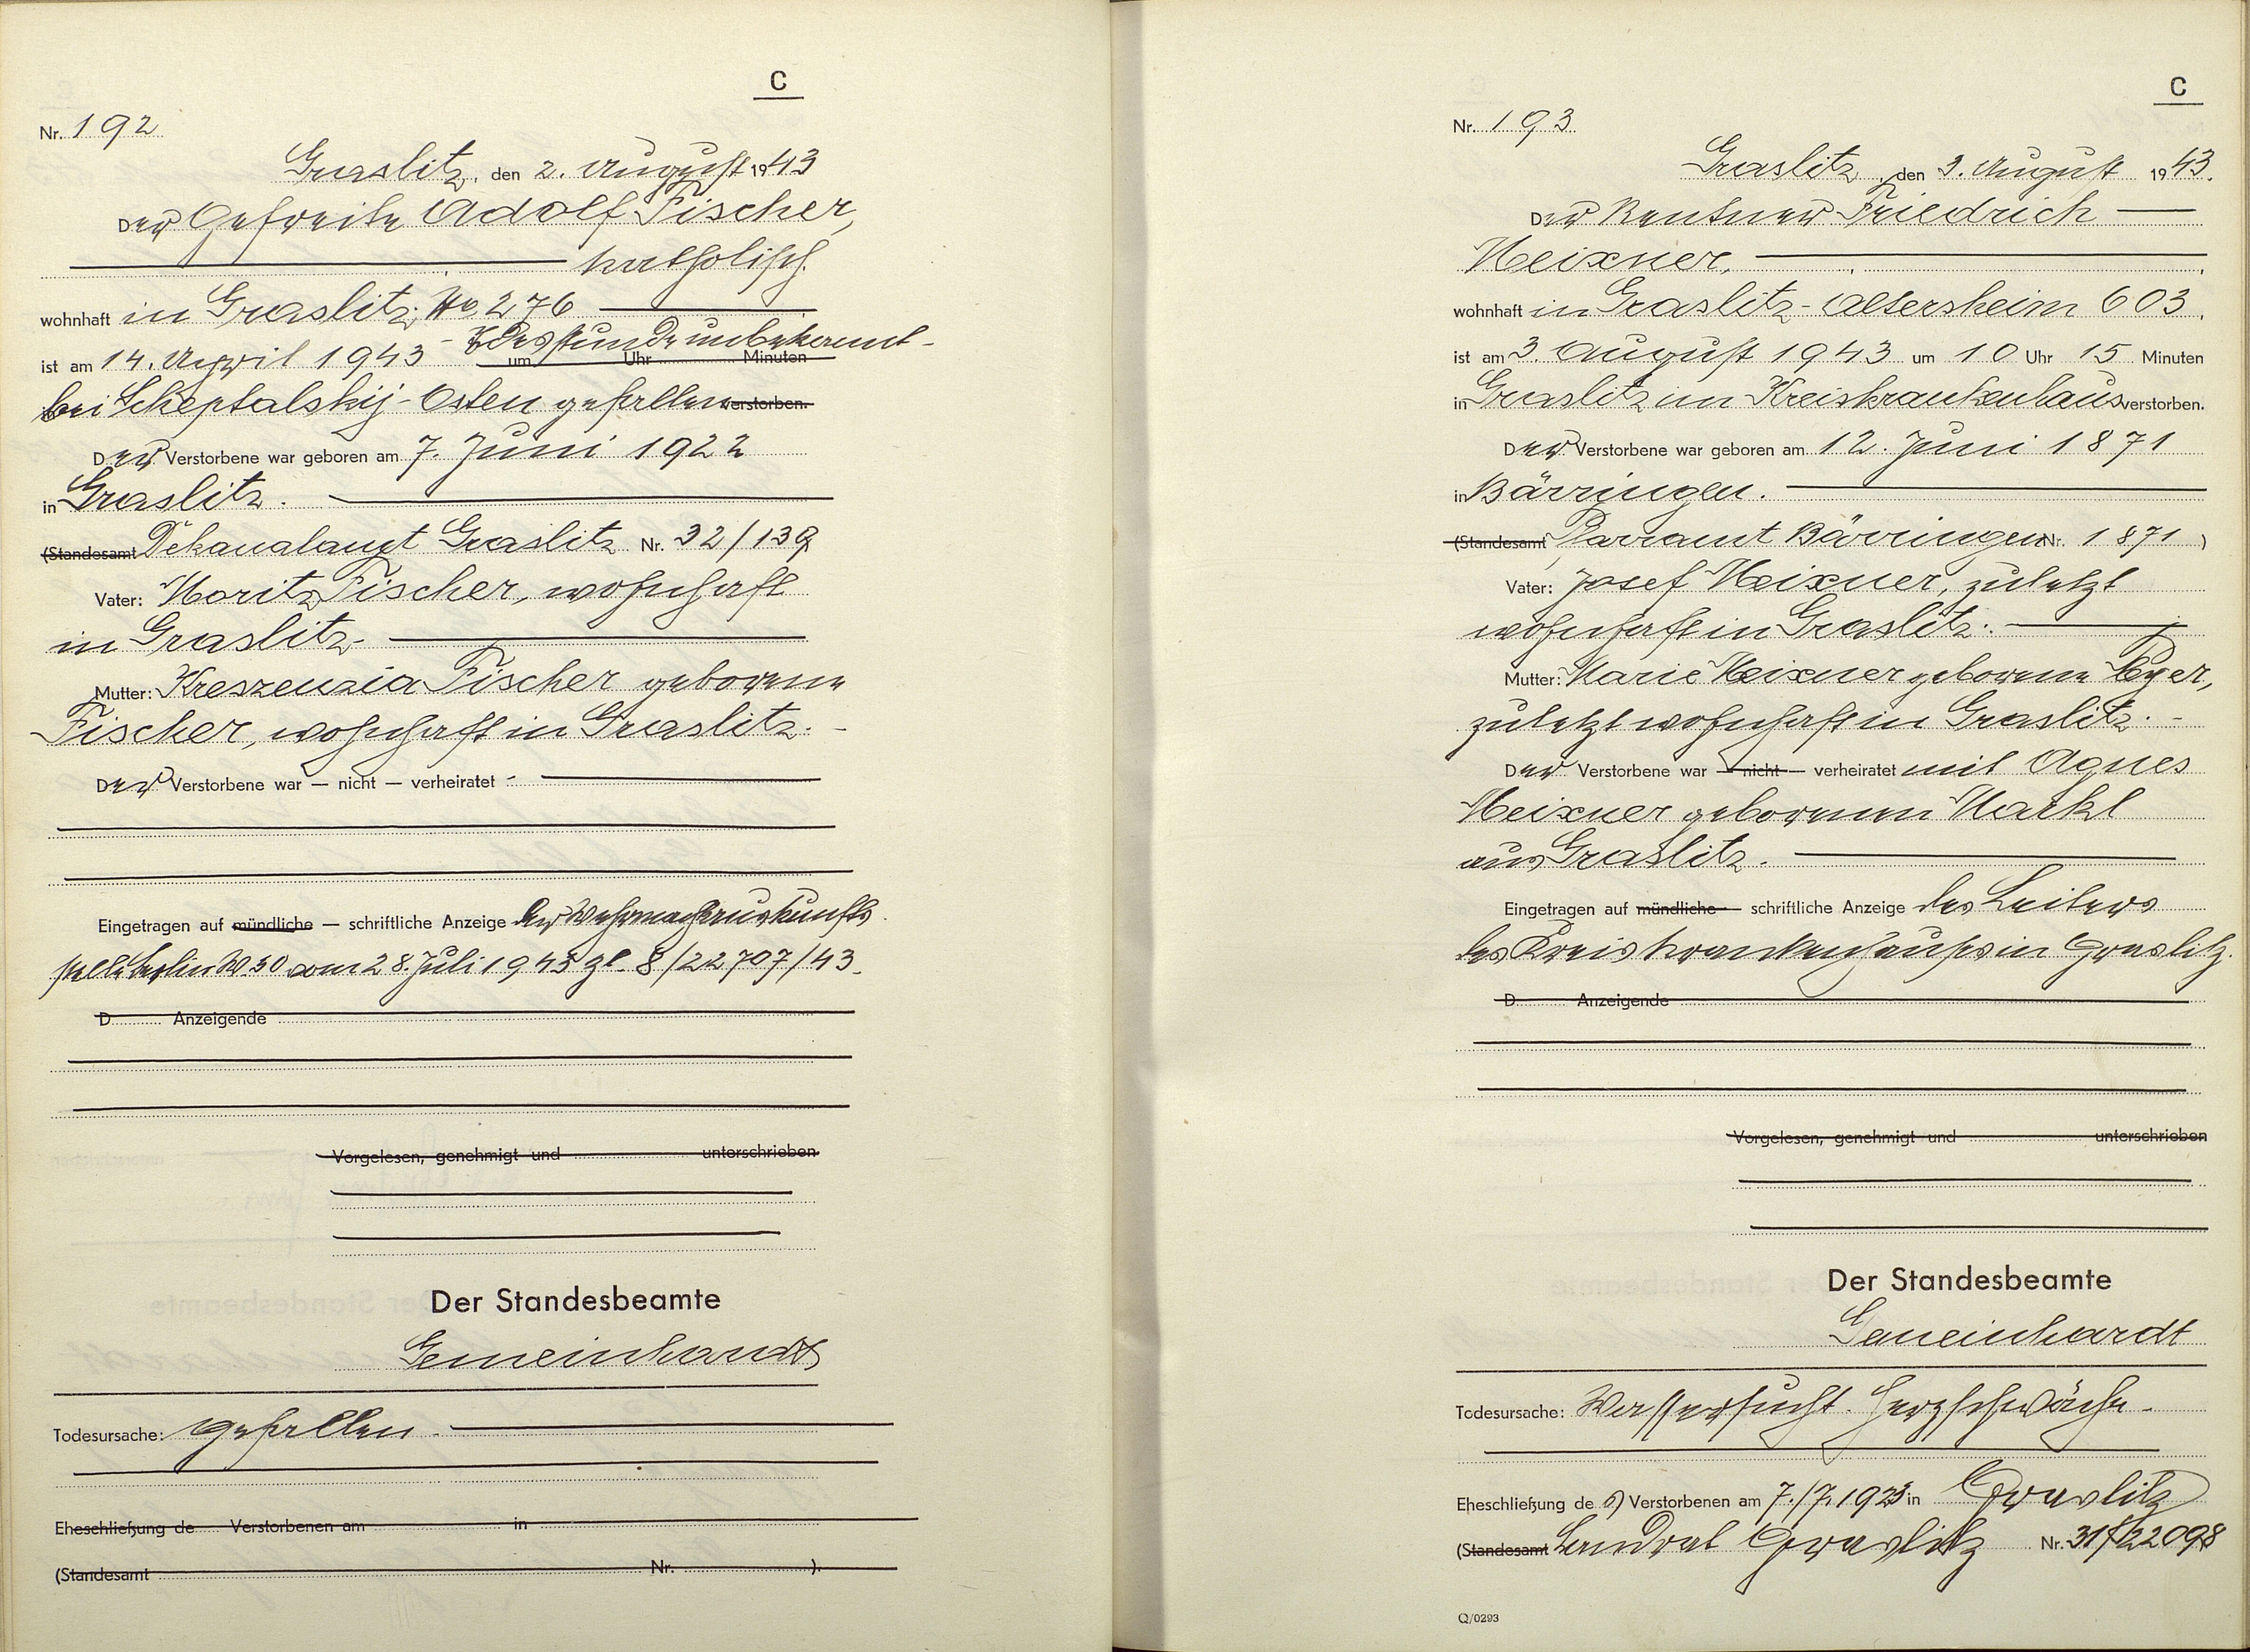 C
Nr. 192
Graslitz, den 2. August 1943
Der Gefreite Adolf Fischer,
katholisch.
wohnhaft in Graslitz, No 276
ist am 14. April 1943 - Todesstunde unbekannt -
um Uhr Minuten
bei Scheptalskij-Osten gefallen verstorben.
Der Verstorbene war geboren am 7. Juni 1922
in Graslitz.
(Standesamt Dekanalamt Graslitz Nr. 32/139
Vater: Moritz Fischer, wohnhaft
in Graslitz
Mutter: Kreszenzia Fischer geborene
Fischer, wohnhaft in Graslitz. -
Der Verstorbene war — nicht — verheiratet
Eingetragen auf mündliche — schriftliche Anzeige der Wehrmachtauskunfts
stelle Berlin W 30 vom 28. Juli 1943 Zl. 8/22707/43.
D Anzeigende
Vorgelesen, genehmigt und unterschrieben
Der Standesbeamte
Gemeinhardt
Todesursache: gefallen.
Eheschließung de Verstorbenen am in
(Standesamt Nr. ).
C
Nr. 193
Graslitz, den 3. August 1943.
Der Rentner Friedrich
Meixner,
wohnhaft in Graslitz-Altersheim 603,
ist am 3. August 1943 um 10 Uhr 15 Minuten
in Graslitz im Kreiskrankenhaus verstorben.
Der Verstorbene war geboren am 12. Juni 1871
in Bärringen.
(Standesamt Pfarramt Bärringen Nr. 1871 )
Vater: Josef Meixner, zuletzt
wohnhaft in Graslitz.
Mutter: Marie Meixner geborene
zuletzt wohnhaft in Graslitz. -
Der Verstorbene war — nicht — verheiratet mit Agnes
Meixner geborenen Markl
aus Graslitz.
Eingetragen auf mündliche — schriftliche Anzeige des Leiters
des Kreiskrankenhauses in Graslitz.
D Anzeigende
Vorgelesen, genehmigt und unterschrieben
Der Standesbeamte
Gemeinhardt
Todesursache: Wassersucht. Herzschwäche.
Eheschließung des Verstorbenen am 7./7. 1923 in Graslitz
(Standesamt Landrat Graslitz Nr.
Q/0293